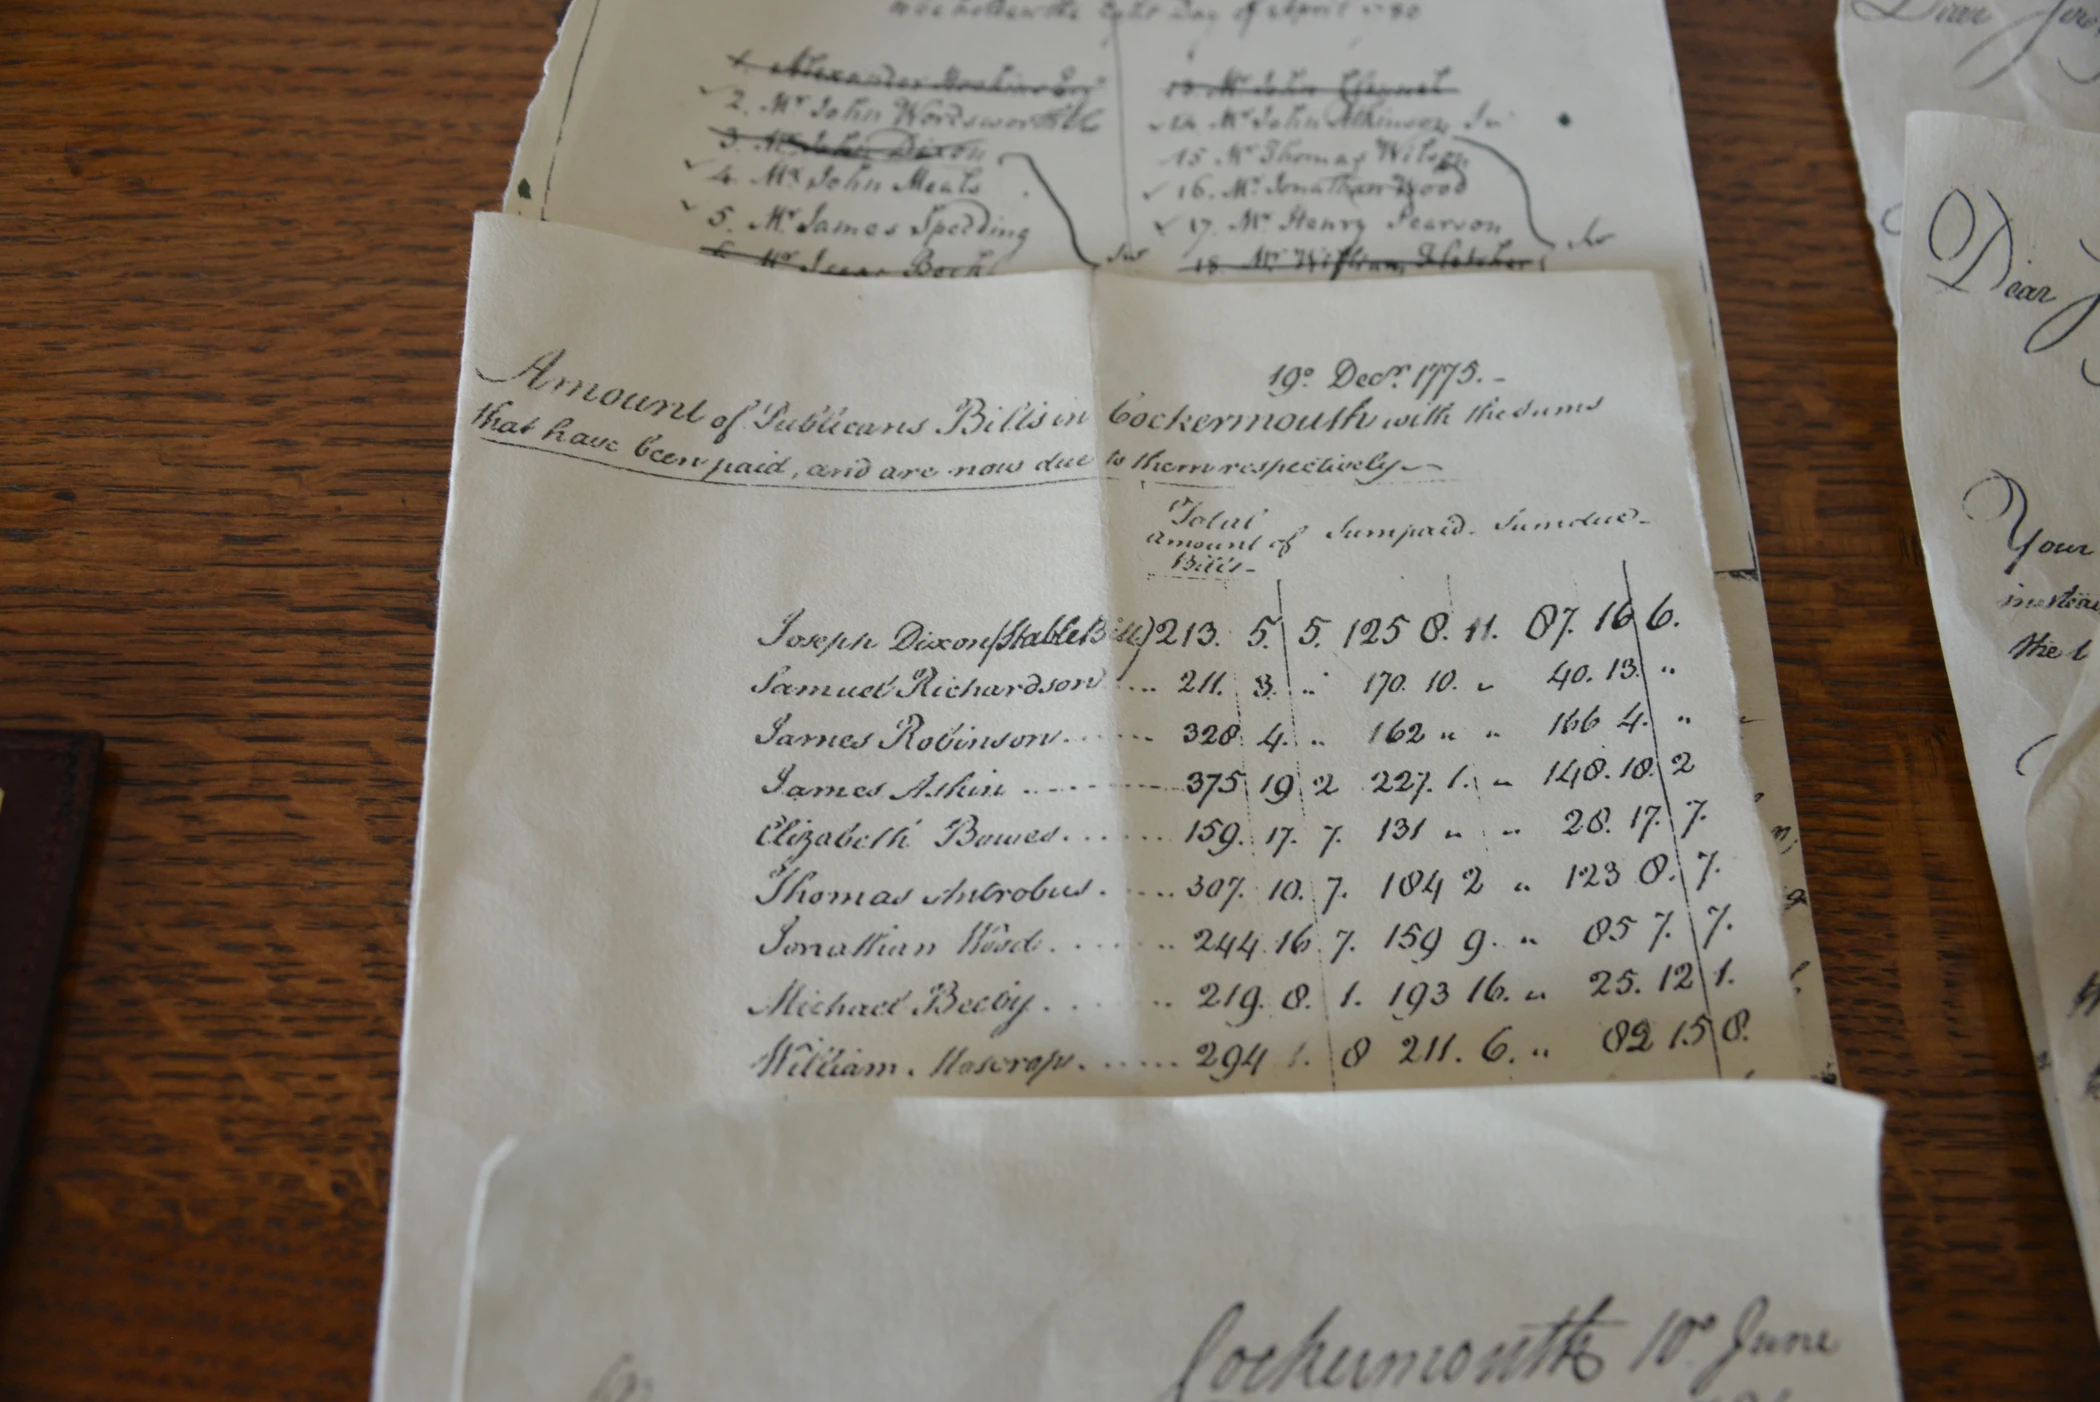 the Day of April
1. Alexander Hoskins Esqr
2. Mr John Wordsworth
3. Mr John Dixon
4. Mr John Meals
5. Mr James Spedding
6. Mr Isaac
13. Mr John
14. Mr John Atkinson Jr
15. Mr Thomas Wilson
16. Mr Jonathan Wood
17. Mr Henry Pearson
18. Mr William Fletcher
19o. Decr. 1775.-
Amount of Publicans Bills in Cockermouth with the sums
that have been paid, and are now due to them respectively
Total amount of Bills- Sum paid. Sum due-
Joseph Dixon (Stable Bill) 213. 5. 5. 125 8. 11. 87. 16 6.
Samuel Richardson .... 211. 3. " 170. 10. " 40. 13. "
James Robinson....... 328. 4. " 162 " " 166 4. "
James Askin .......... 375 19 2 227. 1. " 148. 18. 2
Elizabeth Bowes....... 159. 17. 7. 131 " " 28. 17. 7.
Thomas Antrobus..... 307. 10. 7. 184 2 " 123 8. 7.
Jonathan Wood....... 244. 16. 7. 159 9. " 85 7. 7.
Michael Beeby....... 219. 8. 1. 193 16. " 25. 12 1.
William Mascrop....... 294 1. 8 211. 6. " 82 15 8.
Cockermouth 10o June
Dear
Dear
Your
instead
the